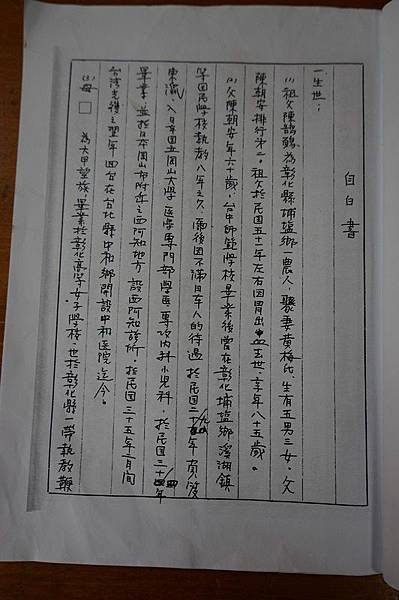 自白書
一、生世：
(1) 祖父陳鵲為彰化縣埔盐鄉一農人，娶妻黃梅氏，生有五男三女。父
陳朝安排行第一。祖父於民国五十一年左右因胃出血去世，享年八十五歲。
(2) 父陳朝安年六十歲，台中師範學校畢業後曾在彰化埔盐鄉溪湖鎮
等国民學校執教八年之久，而後因不滿日本人的待遇於民国二十九年東渡
東瀛，入日本国立岡山大學医學專門部學医專攻內科小兒科，於民国三十四年
畢業，並於日本岡山市附近之西阿知地方設西阿知診所。於民国三十五年二月間
台湾光復之翌年回台在台北縣中和鄉開設中和医院迄今。
(3) 母□　為大甲望族，畢業於彰化高等女子學校，也於彰化縣一帶執教鞭